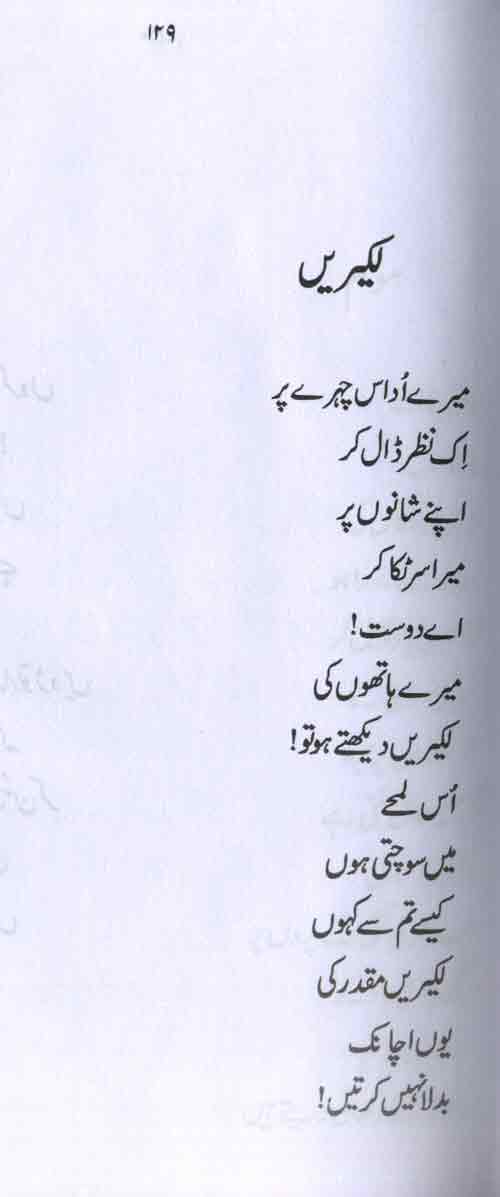 ۱۲۹
لکیریں
میرے اُداس چہرے پر
اِک نظر ڈال کر
اپنے شانوں پر
میرا سر ٹکا کر
اے دوست!
میرے ہاتھوں کی
لکیریں دیکھتے ہو تو!
اُس لمحے
میں سوچتی ہوں
کیسے تم سے کہوں
لکیریں مقدر کی
یوں اچانک
بدلا نہیں کرتیں!